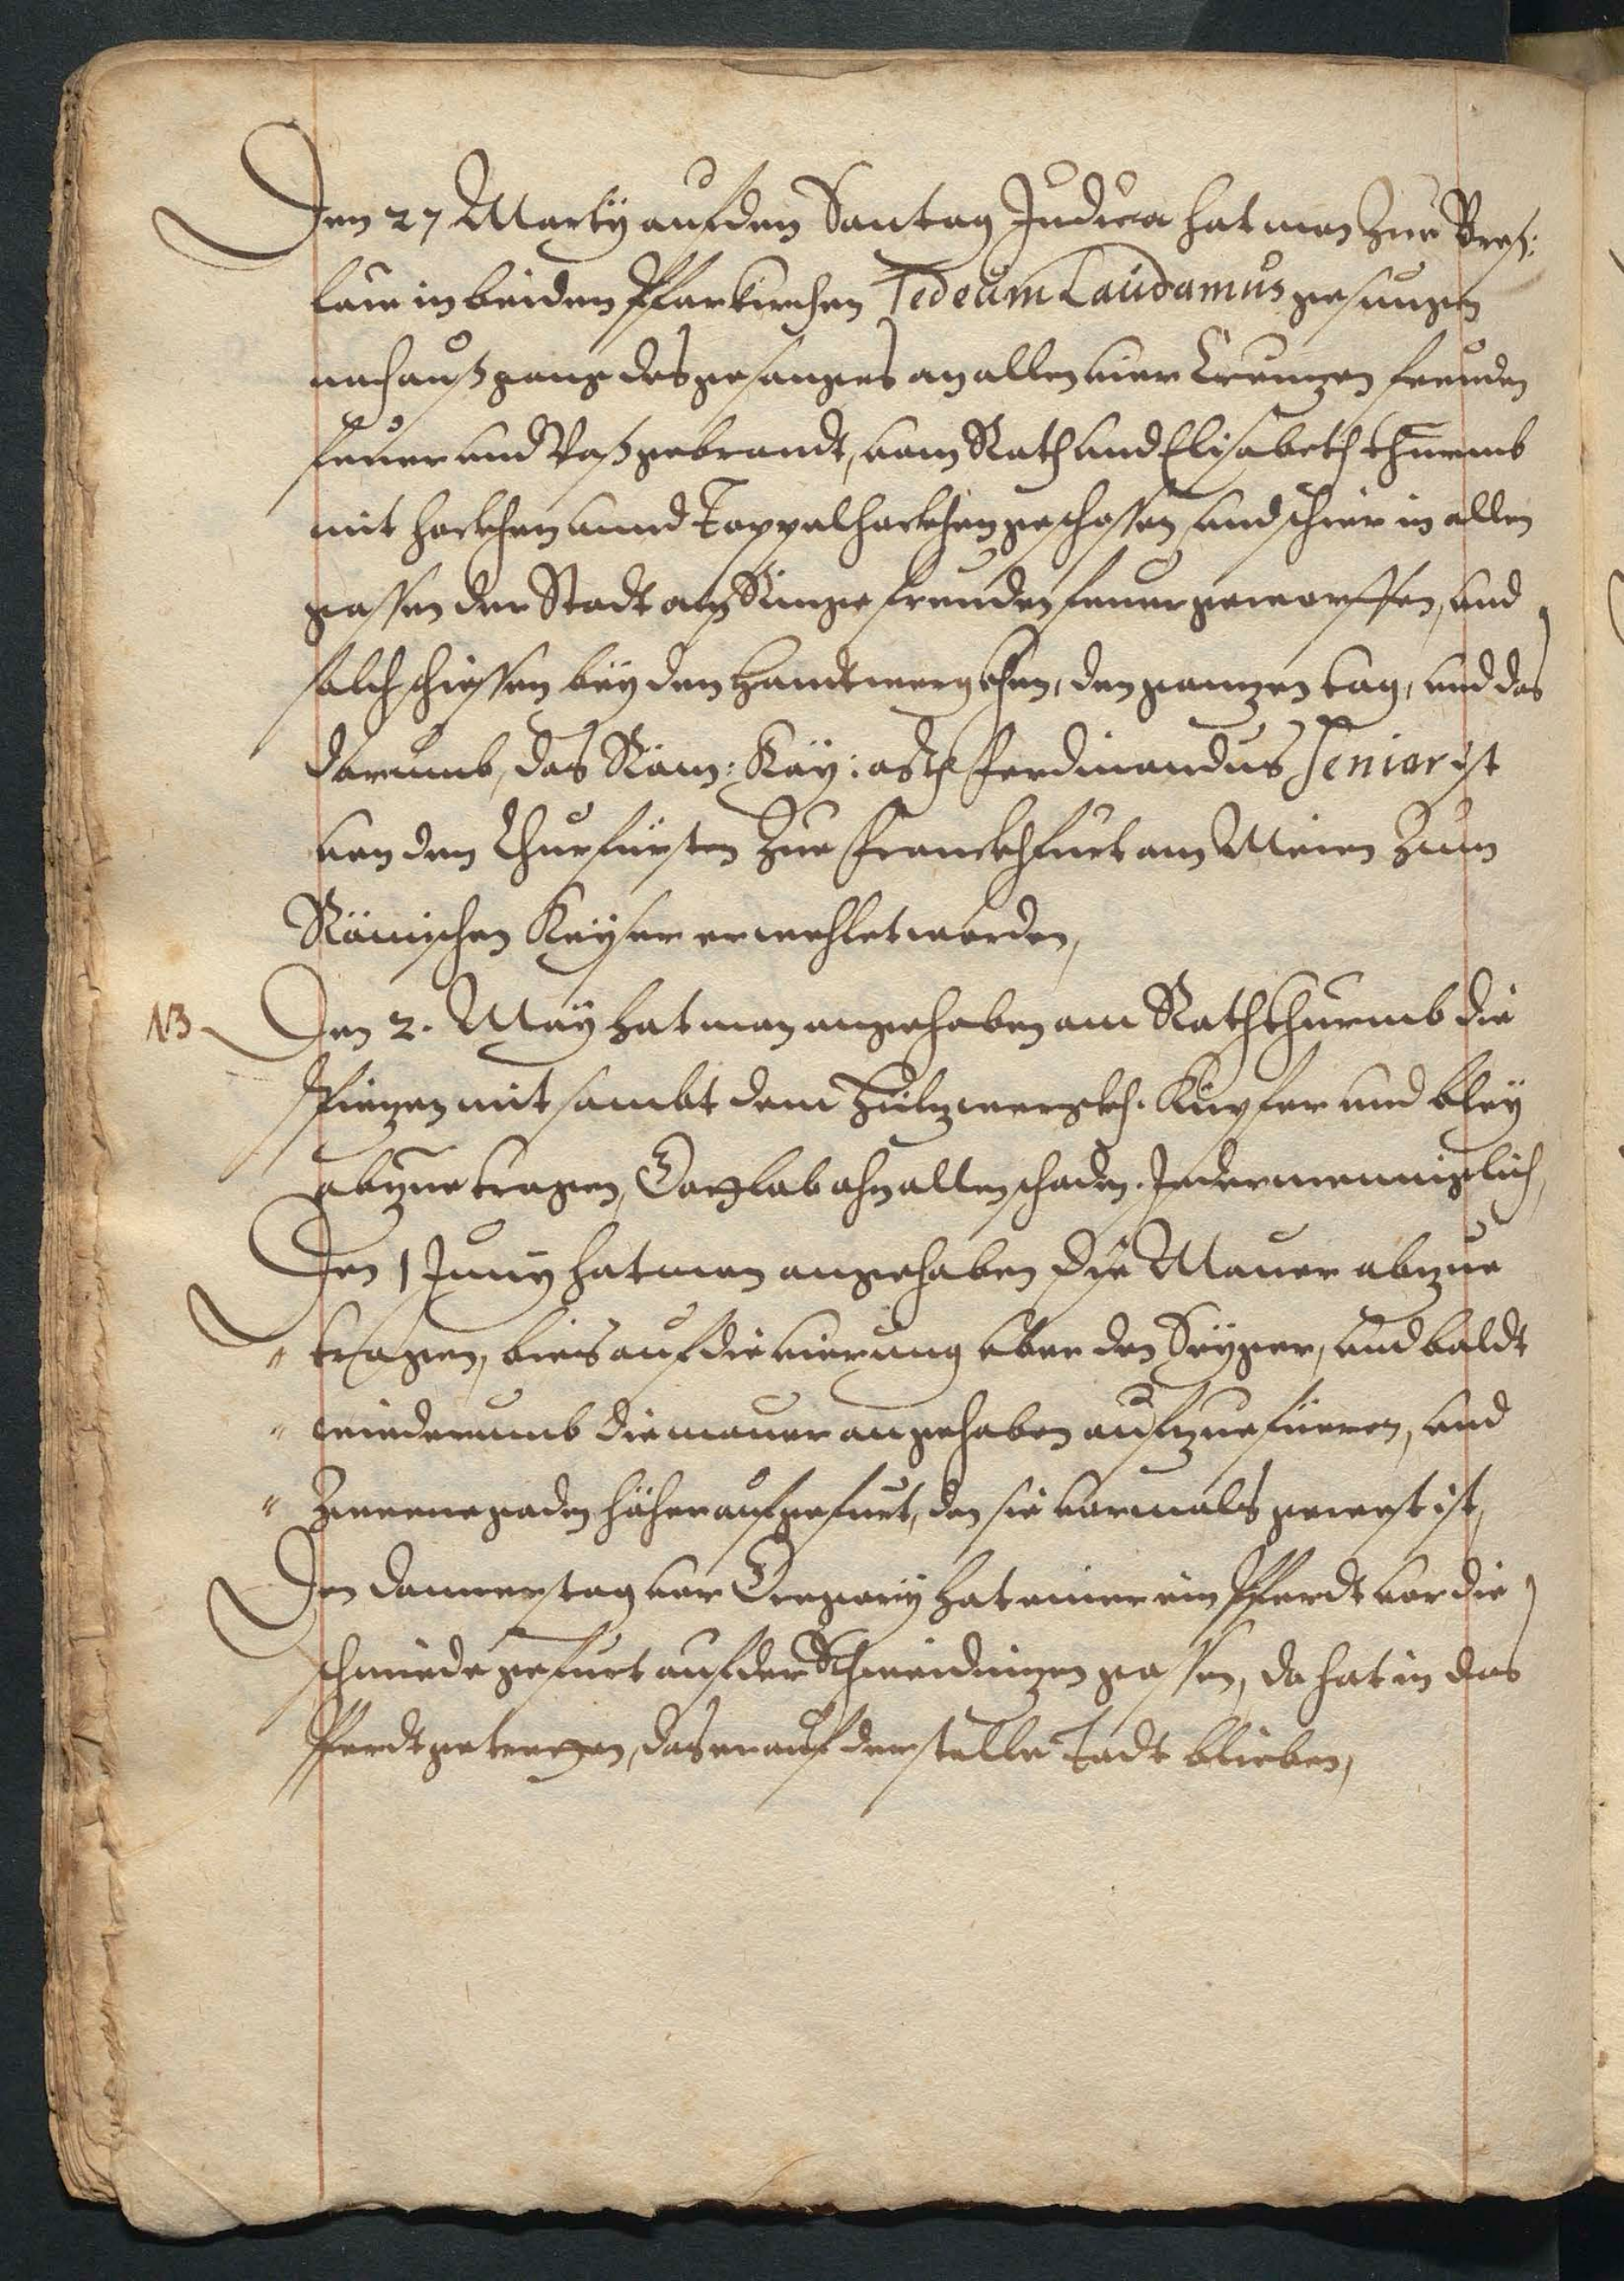 Den 27 Marty auf den Sontag Judica hat man Zue Breß:
law in beiden Pfarkirchen Te deum Laudamus gesungen
nach außgang des gesanges an allen vier freuden
feuer und gebrandt, vom Rath und Elisabeth thurmb
mit hackhen unnd Toppelhackhen geschossen, und schier in allen
gassen der Stadt am Ringe freuden feuer geworffen, und
solch schiessen bey den Handtwergkhen, den ganzen tag, und das
darumb, das Röm: Kay: Ferdinandus Senior ist
von den Churfürsten Zue Franckhfurt am Meien Zum
Römischen Keyser erwehlet worden,
NB Den 2. May hat man angehoben am Rath thurmb die
Spiezen mit sambt dem Hülzwergkh. Kupfer und bley
abzuetragen, Gottlob ohn allen schaden. Jedermenniglich,
Den 1 Juny hat man angehoben die Mauer abzue
" tragen, bies auf die vierung uber den Seyger, und baldt
" wiederumb die mauer angehoben aufzuefüeren, und
" Zweene gaden höher aufgefurt, den sie vormals gewest ist,
Den donnerstag vor Gregory hat einer ein Pferdt vor die
schmiede gefurt auf der Schweidnizen gassen, da hat in das
Pferdt getretten, das er auf der stelle Todt blieben,